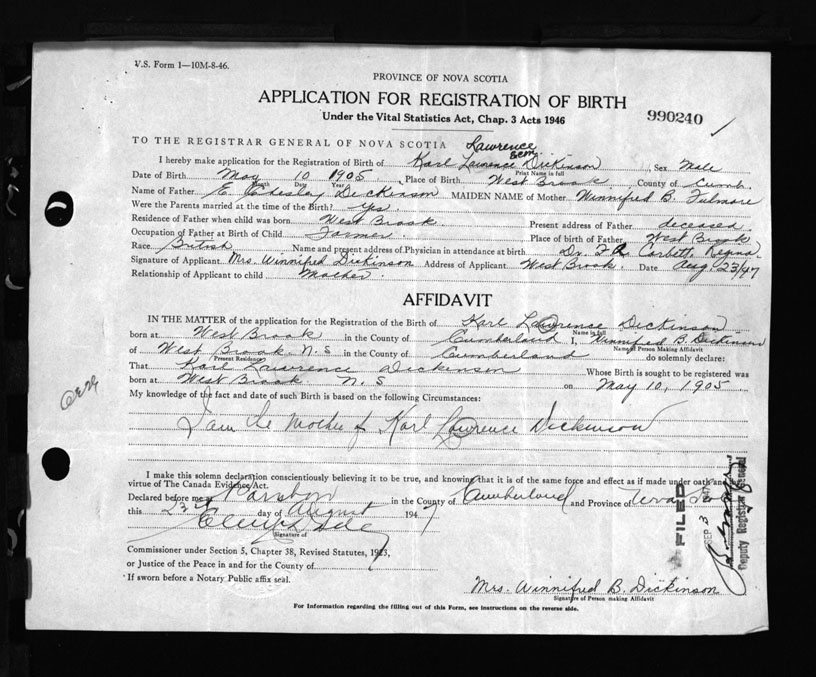 V.S. Form 1—10M-8-46.
PROVINCE OF NOVA SCOTIA
APPLICATION FOR REGISTRATION OF BIRTH
Under the Vital Statistics Act, Chap. 3 Acts 1946
990240
TO THE REGISTRAR GENERAL OF NOVA SCOTIA Lawrence
I hereby make application for the Registration of Birth of Karl Lawrence Dickinson Sex Male
Print Name in full
Date of Birth May 10 1905 Place of Birth West Brook County of Cumb.
Month Date Year
Name of Father E. Chesley Dickinson MAIDEN NAME of Mother Winnifred B. Fulmore
Were the Parents married at the time of the Birth? Yes.
Residence of Father when child was born West Brook. Present address of Father deceased
Occupation of Father at Birth of Child Farmer. Place of birth of Father West Brook
Race British Name and present address of Physician in attendance at birth Dr. Corbett, Regina.
Signature of Applicant Mrs. Winnifred Dickinson Address of Applicant West Brook. Date Aug. 23/47
Relationship of Applicant to child Mother.
AFFIDAVIT
IN THE MATTER of the application for the Registration of Birth of Karl Lawrence Dickinson
Name in full
born at West Brook in the County of Cumberland I, Winnifred B. Dickinson
Name of Person Making Affidavit
of West Brook N.S in the County of Cumberland do solemnly declare:
Present Residence
That Karl Lawrence Dickinson Whose Birth is sought to be registered was
born at West Brook N.S on May 10, 1905
My knowledge of the fact and date of such Birth is based on the following Circumstances:
I am the Mother of Karl Lawrence Dickinson
I make this solemn declaration conscientiously believing it to be true, and knowing that it is of the same force and effect as if made under oath and by
virtue of The Canada Evidence Act.
Declared before me at Parrsboro in the County of Cumberland and Province of Nova Scotia
this 23rd day of August 1947
Signature of
Commissioner under Section 5, Chapter 38, Revised Statutes, 1923,
or Justice of the Peace in and for the County of
If sworn before a Notary Public affix seal.
Mrs. Winnifred B. Dickinson
Signature of Person making Affidavit
For Information regarding the filling out of this Form, see instructions on the reverse side.
FILED
SEP 3 1947
Deputy Registrar General